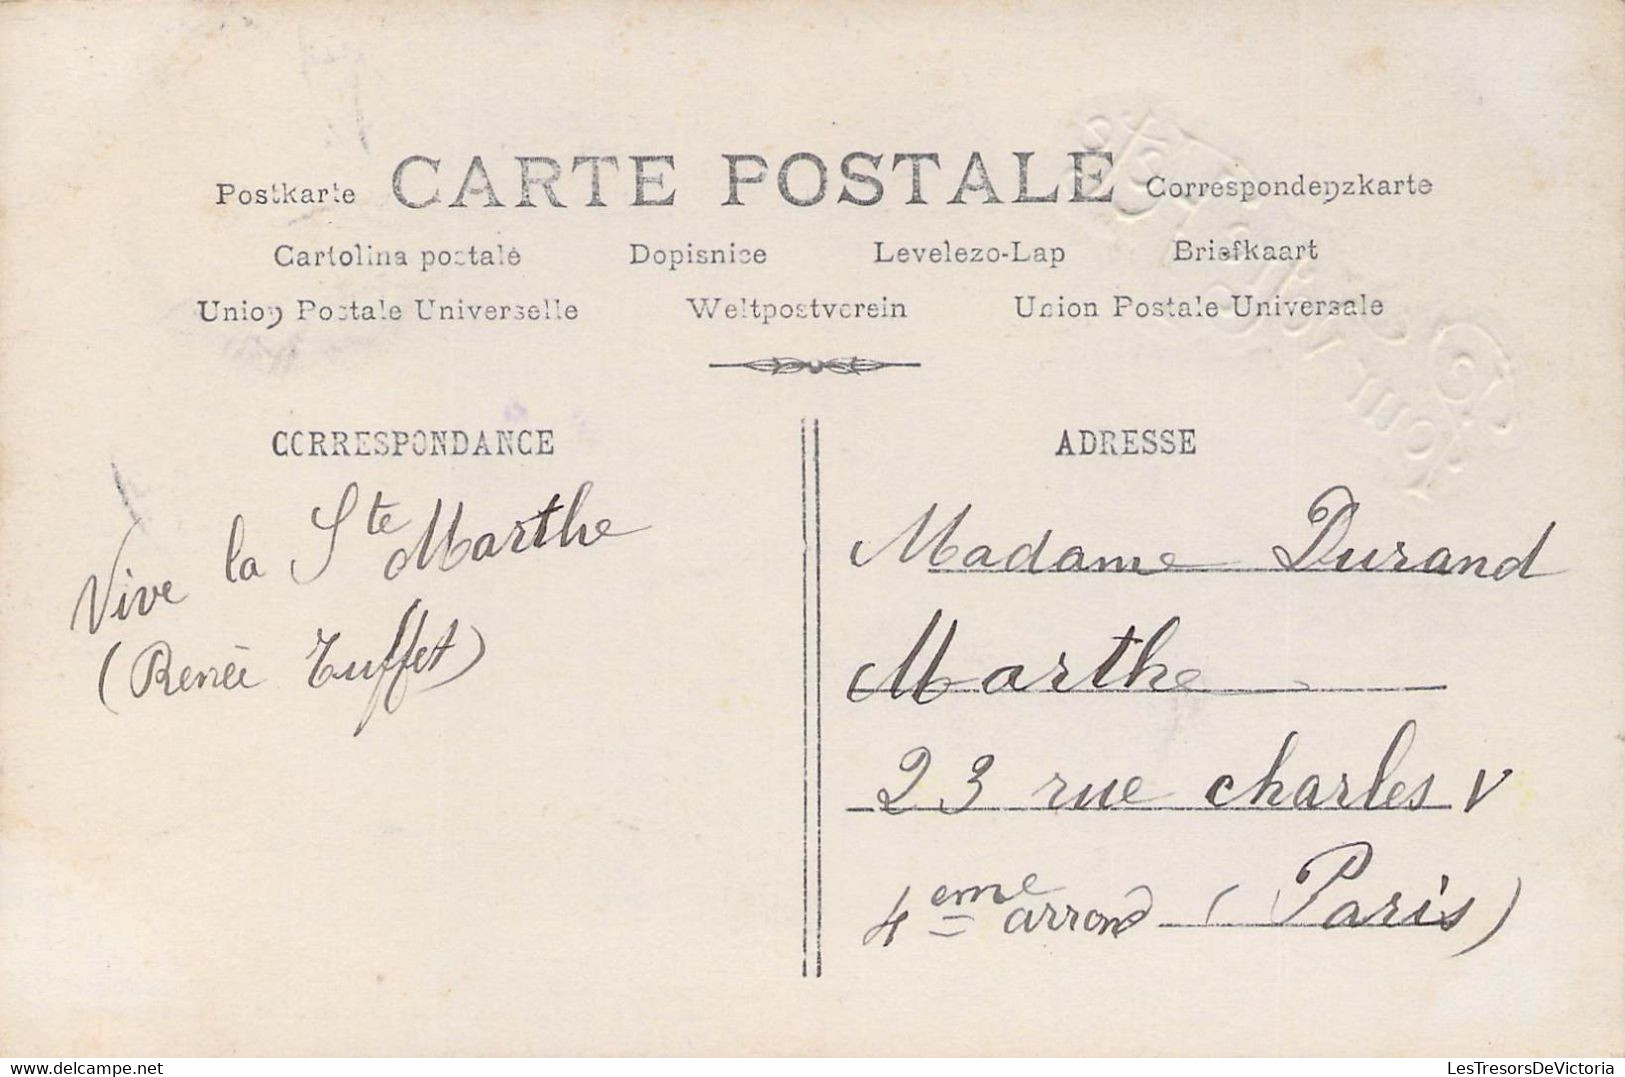 Postkarte CARTE POSTALE Correspondenzkarte
Cartolina postale Dopisnice Levelezo-Lap Briefkaart
Union Postale Universelle Weltpostverein Union Postale Universale
CORRESPONDANCE
Vive la Ste Marthe
(Renée Tuffet)
ADRESSE
Madame Durand
Marthe
23 rue charles V
4eme arrond (Paris)
delcampe.net
LesTresorsDeVictoria